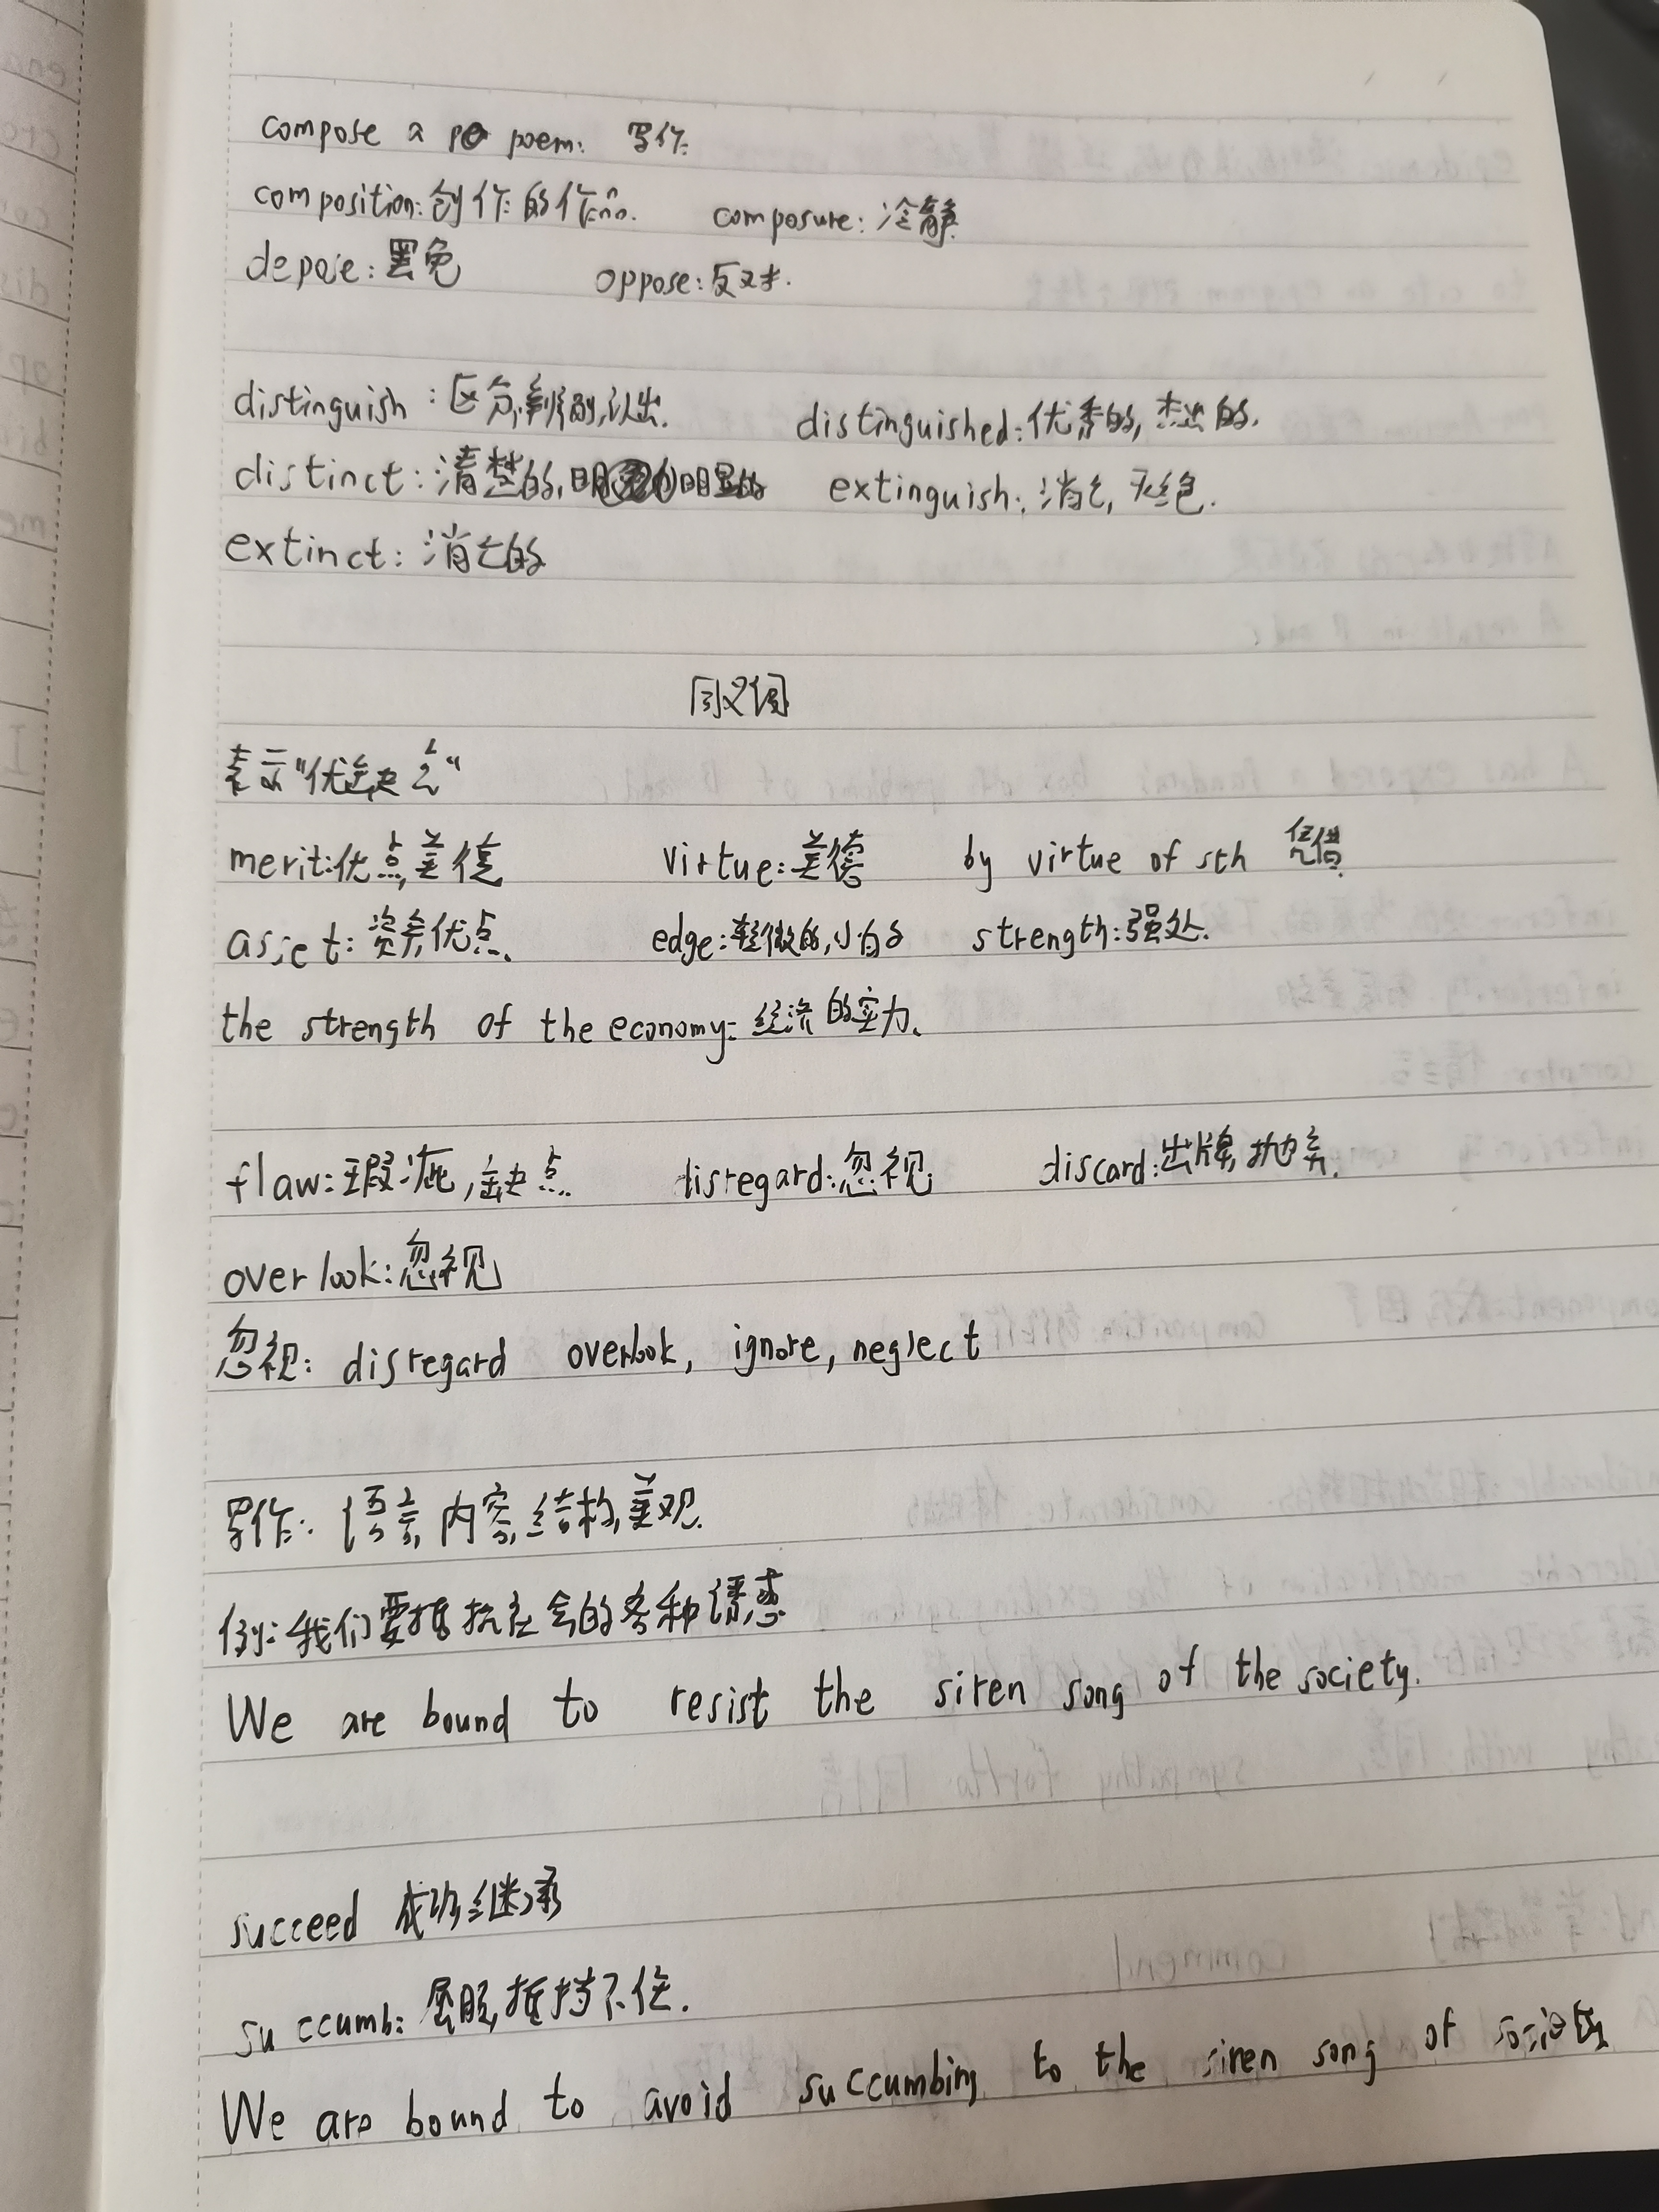 compose a poem: 写作.
composition: 创作的作品. composure: 冷静.
depose: 罢免 oppose: 反对.
distinguish: 区分,判别,认出. distinguished: 优秀的, 杰出的.
distinct: 清楚的, 明显的 extinguish: 消亡, 灭绝.
extinct: 消亡的
同义词
表示"优缺点"
merit: 优点,美德 virtue: 美德 by virtue of sth 凭借.
asset: 资产,优点. edge: 轻微的,小的 strength: 强处.
the strength of the economy: 经济的实力.
flaw: 瑕疵,缺点. disregard: 忽视 discard: 出牌,抛弃.
overlook: 忽视
忽视: disregard overlook, ignore, neglect
写作: 语言,内容,结构,美观.
例: 我们要抵抗社会的各种诱惑
We are bound to resist the siren song of the society.
succeed 成功,继承
succumb: 屈服,抵挡不住.
We are bound to avoid succumbing to the siren song of society